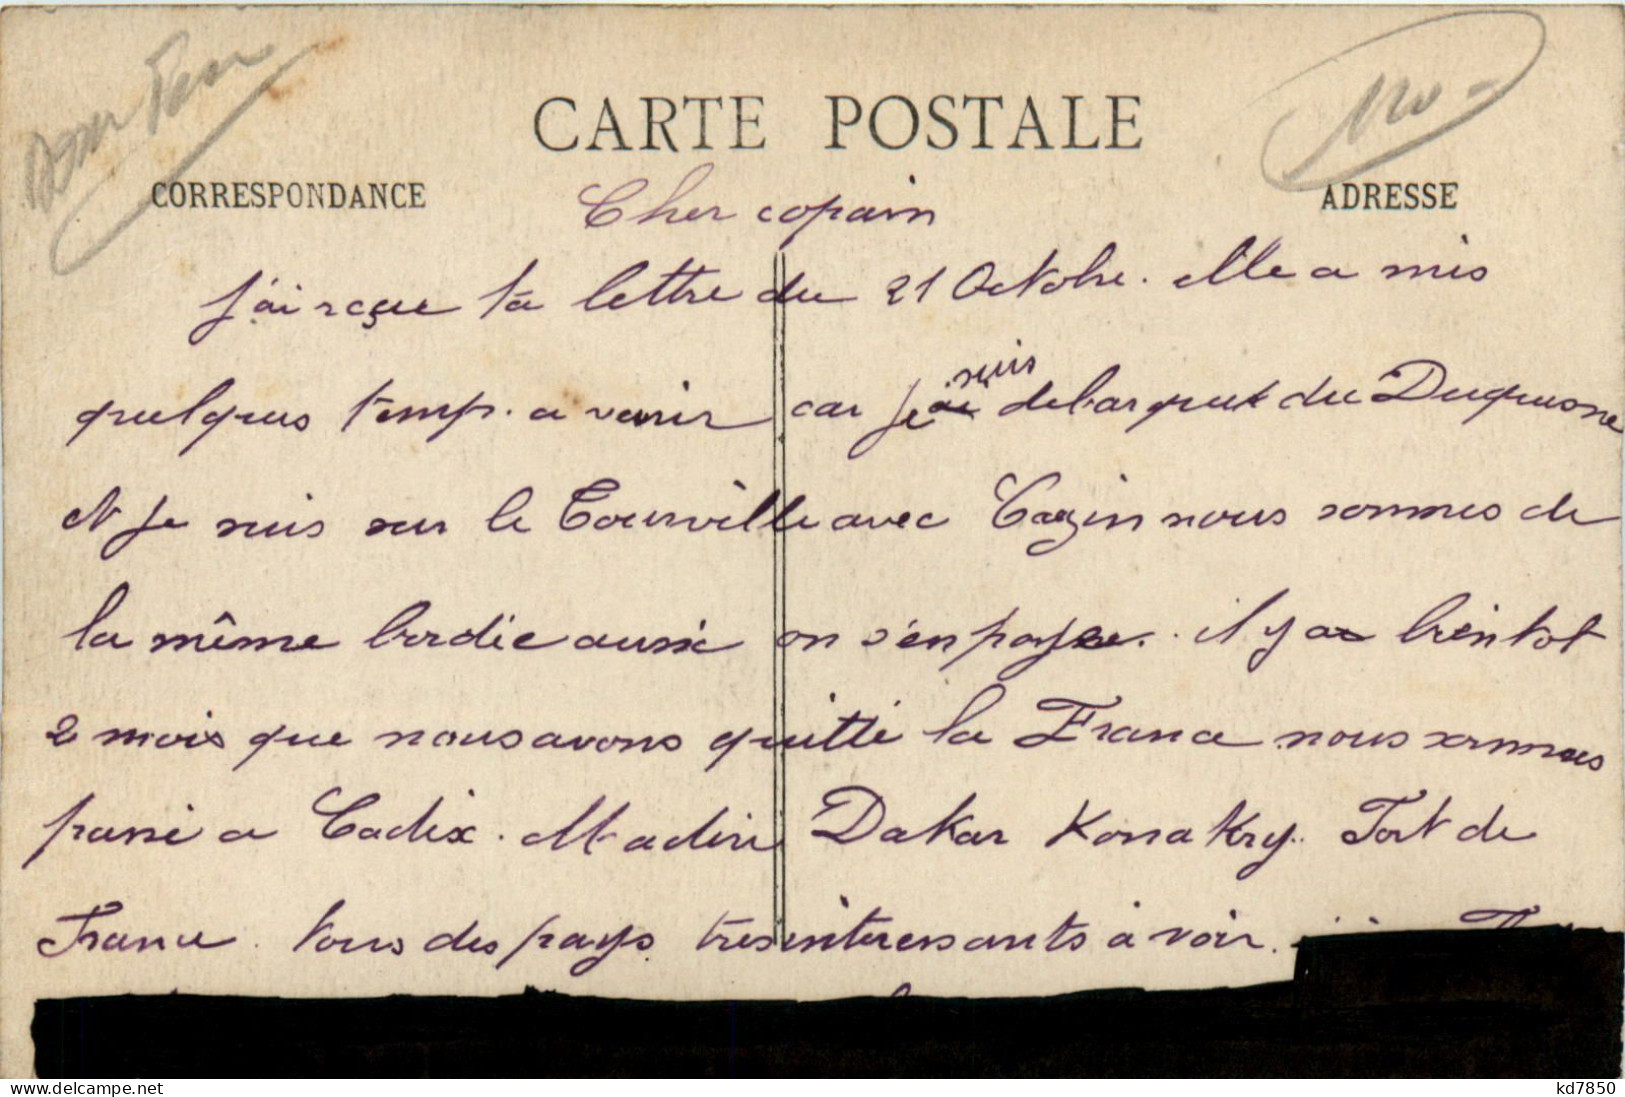 CARTE POSTALE
CORRESPONDANCE
ADRESSE
Cher copain
J'ai reçue ta lettre du 21 Octobre. elle a mis
quelques temp. a venir car je suis debarquet du Duquesne
et je suis sur le Tourville avec Cazin nous sommes de
la même bordée aussi on s'en paye. il y a bientot
2 mois que nous avons quitté la France nous sommes
passé a Cadix. Madère Dakar Konakry. Fort de
France. tous des pays tres interessants à voir.
www.delcampe.net
kd7850